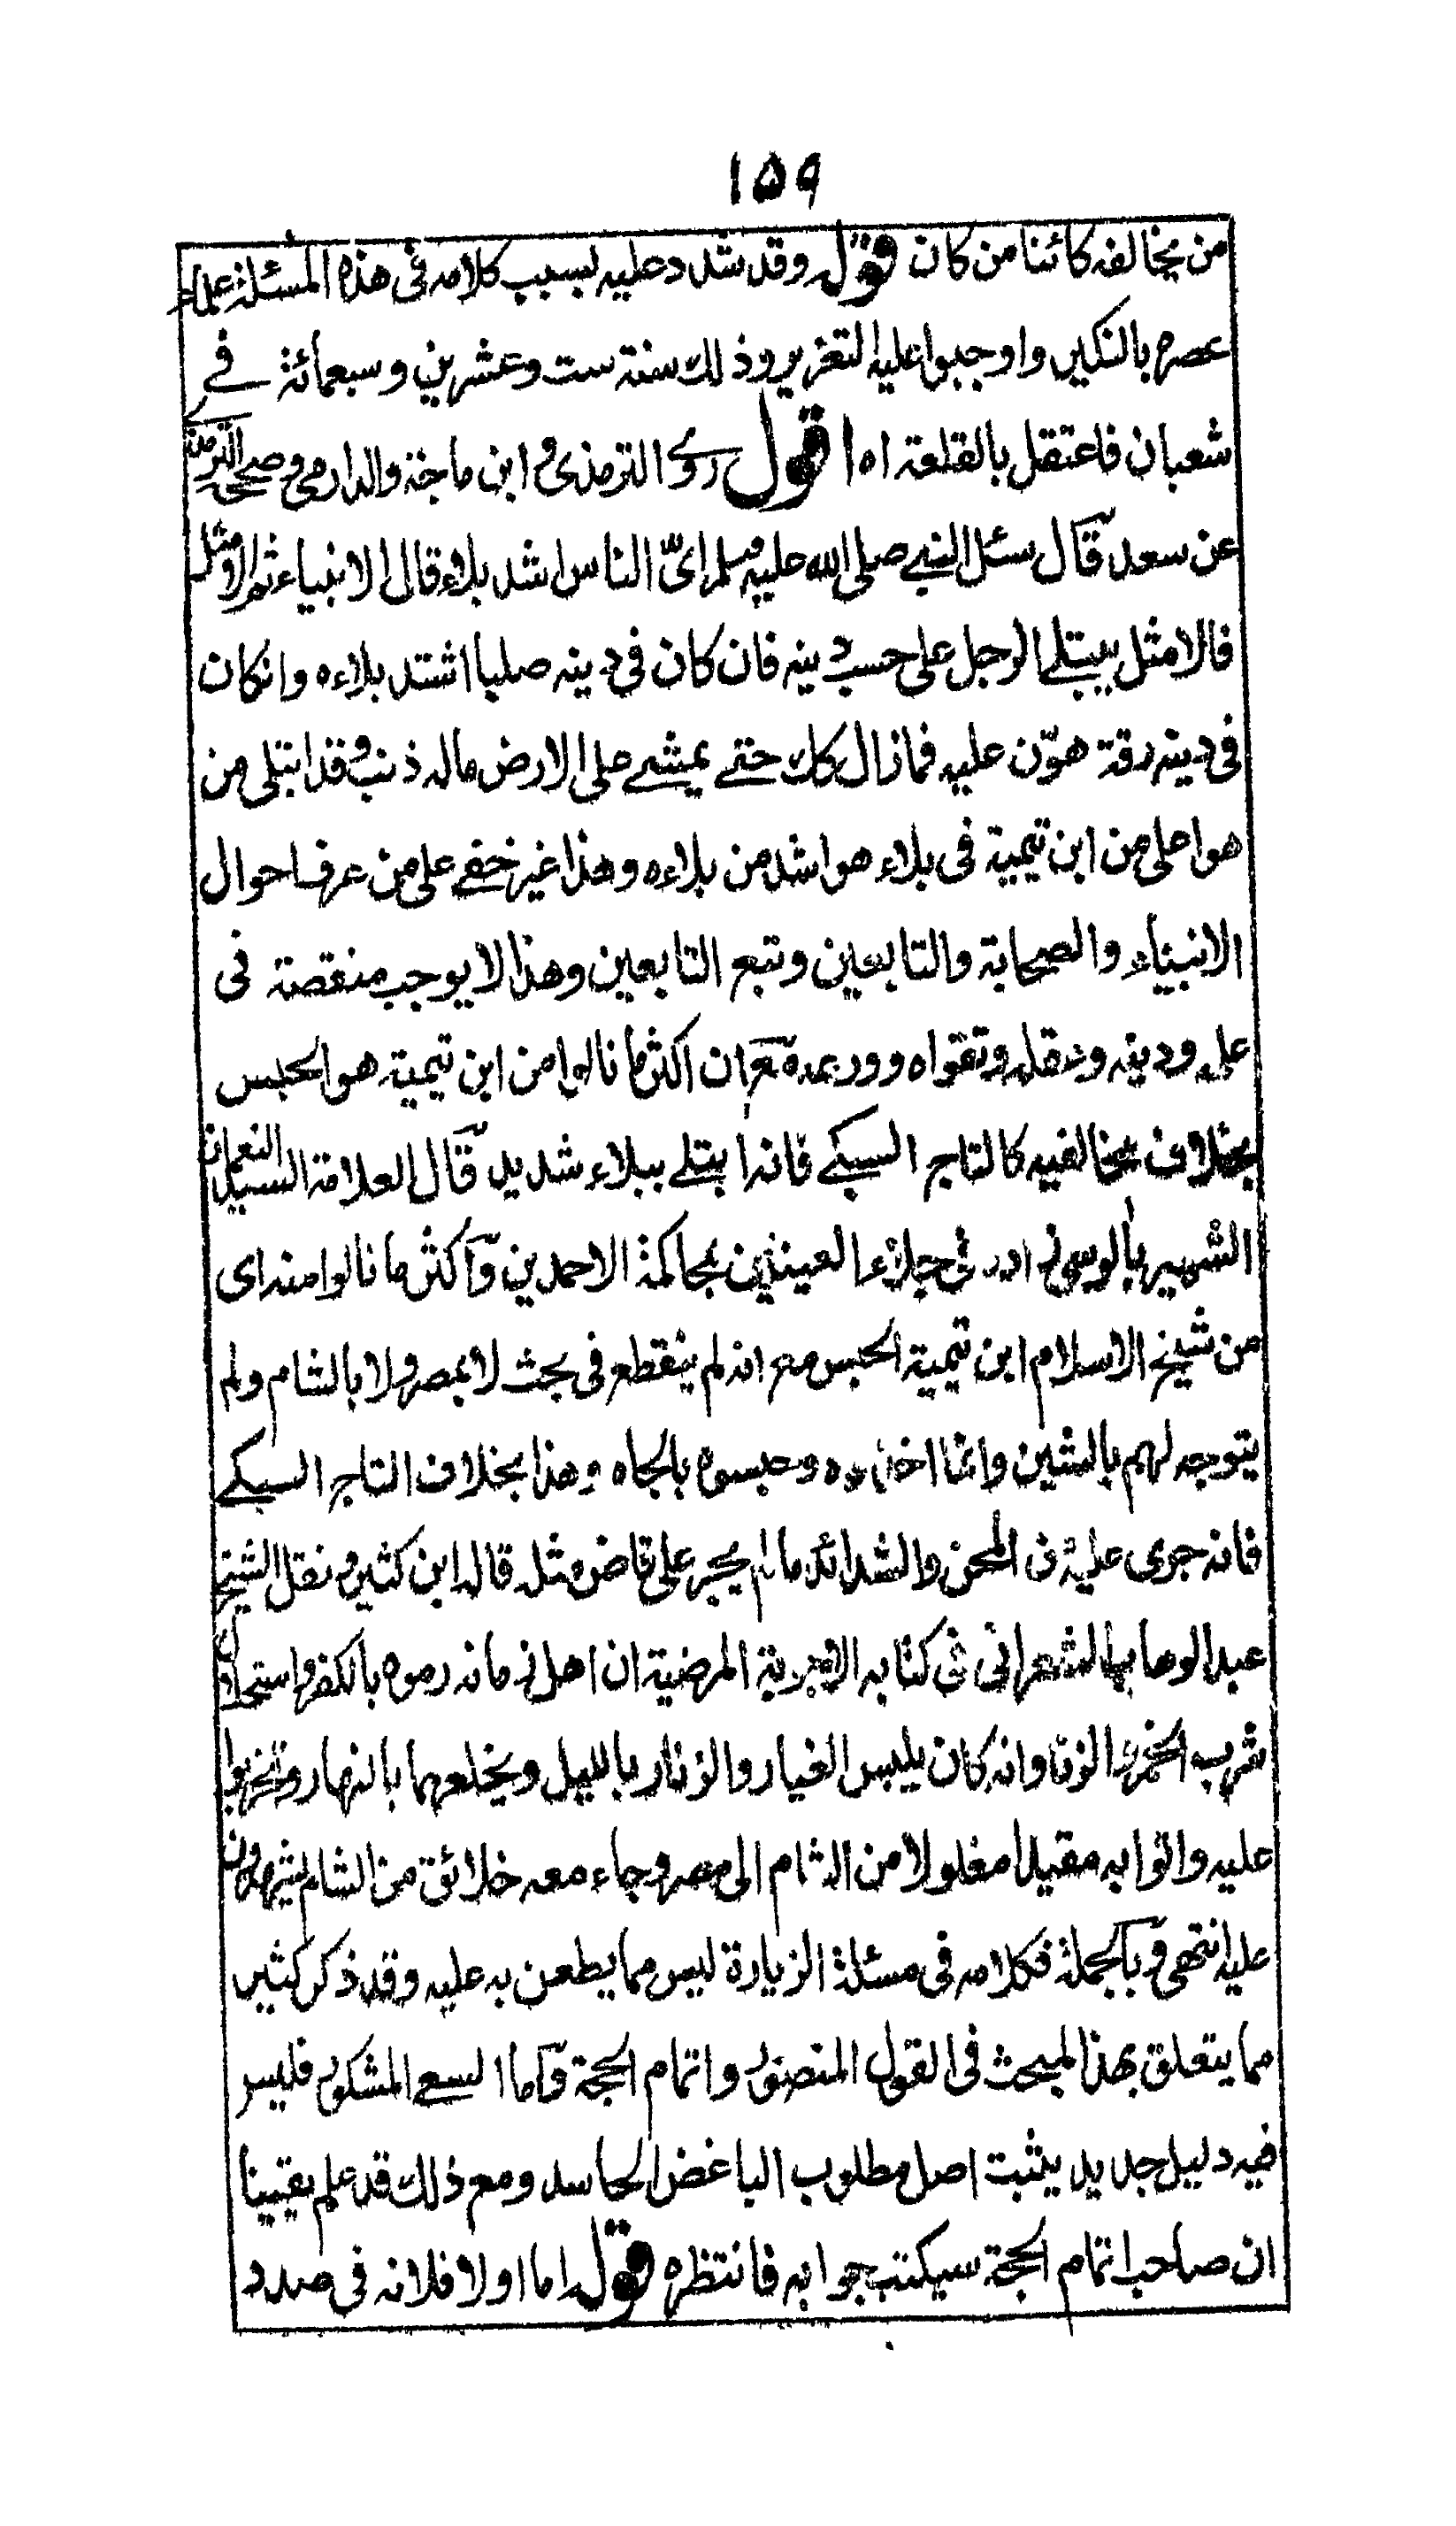 ١٥٩
من يخالفه كائنا من كان قوله وقد شدد عليه بسبب كلامه فى هذه المسئلة علماء
عصره بالنكير واوجبوا عليه التعزير وذلك سنة ست وعشرين وسبعمائة فے
شعبان فاعتقل بالقلعة اه اقول روى الترمذى وابن ماجة والدارمى وصححه الترمذى
عن سعد قال سئل النبے صلى الله عليه وسلم اىّ الناس اشد بلاء قال الانبياء ثم الامثل
فالامثل يبتلے الرجل على حسب دينه فان كان فى دينه صلبا اشتد بلاءه وانكان
فى دينه رقة هوّن عليه فمازال كك حتے يمشے على الارض ماله ذنب وقد ابتلى من
هو اعلى من ابن تيمية فى بلاء هو اشد من بلاءه وهذا غير خفے على من عرف احوال
الانبياء والصحابة والتابعين وتبع التابعين وهذا لا يوجب منقصة فى
علمه ودينه وعقله وتقواه وورعه مع ان اكثر ما نالوا من ابن تيمية هو الحبس
بخلاف مخالفيه كالتاج السبكے فانه ابتلے ببلاء شديد قال العلامة السيد النعمان
الشهير بالوسى زاده فى جلاء العينين بمحاكمة الاحمدين واكثر ما نالوا منه اى
من شيخ الاسلام ابن تيمية الحبس مع انه لم ينقطع فى بحث لا بمصر ولا بالشام ولم
يتوجه لهم بالشين وانما اخذوه وحبسوه بالجاه وهذا بخلاف التاج السبكے
فانه جرى عليه من المحن والشدائد مالم يجر على قاض مثله قاله ابن كثير ونقل الشيخ
عبد الوهاب الشعرانى فى كتابه الاجوبة المرضية ان اهل زمانه رموه بالكفر واستحلال
شرب الخمر والزنا وانه كان يلبس الغيار والزنار بالليل ويخلعهما بالنهار وتحزبوا
عليه واتوا به مقيدا مغلولا من الشام الى مصر وجاء معه خلائق من الشام يشهدون
عليه انتهى وبالجملة فكلامه فى مسئلة الزيارة ليس مما يطعن به عليه وقد ذكر كثير
مما يتعلق بهذا المبحث فى القول المنصور واتمام الحجة واما السعے المشكور فليس
فيه دليل جديد يثبت اصل مطلوب الباغض الحاسد ومع ذلك قد علم يقينا
ان صاحب اتمام الحجة سيكتب جوابه فانتظره قوله اما اولا فلانه فى صدد